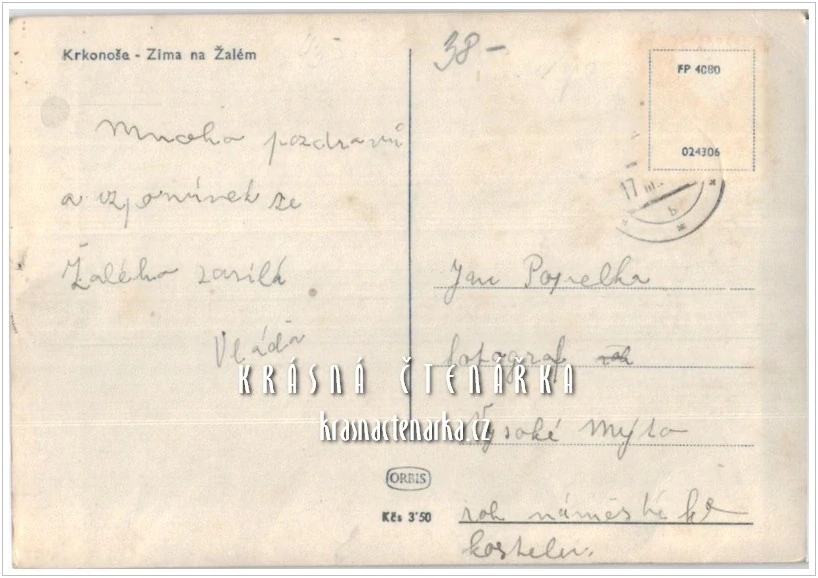 Krkonoše - Zima na Žalém
38-
FP 4080
024306
17 III.
b
Mnoho pozdravů
a vzpomínek ze
Žalého zasílá
Vláďa
Jan Popelka
fotograf
Vysoké Mýto
roh náměstí ke
kostelu.
KRÁSNÁ ČTENÁŘKA
krasnactenarka.cz
ORBIS
Kčs 3'50